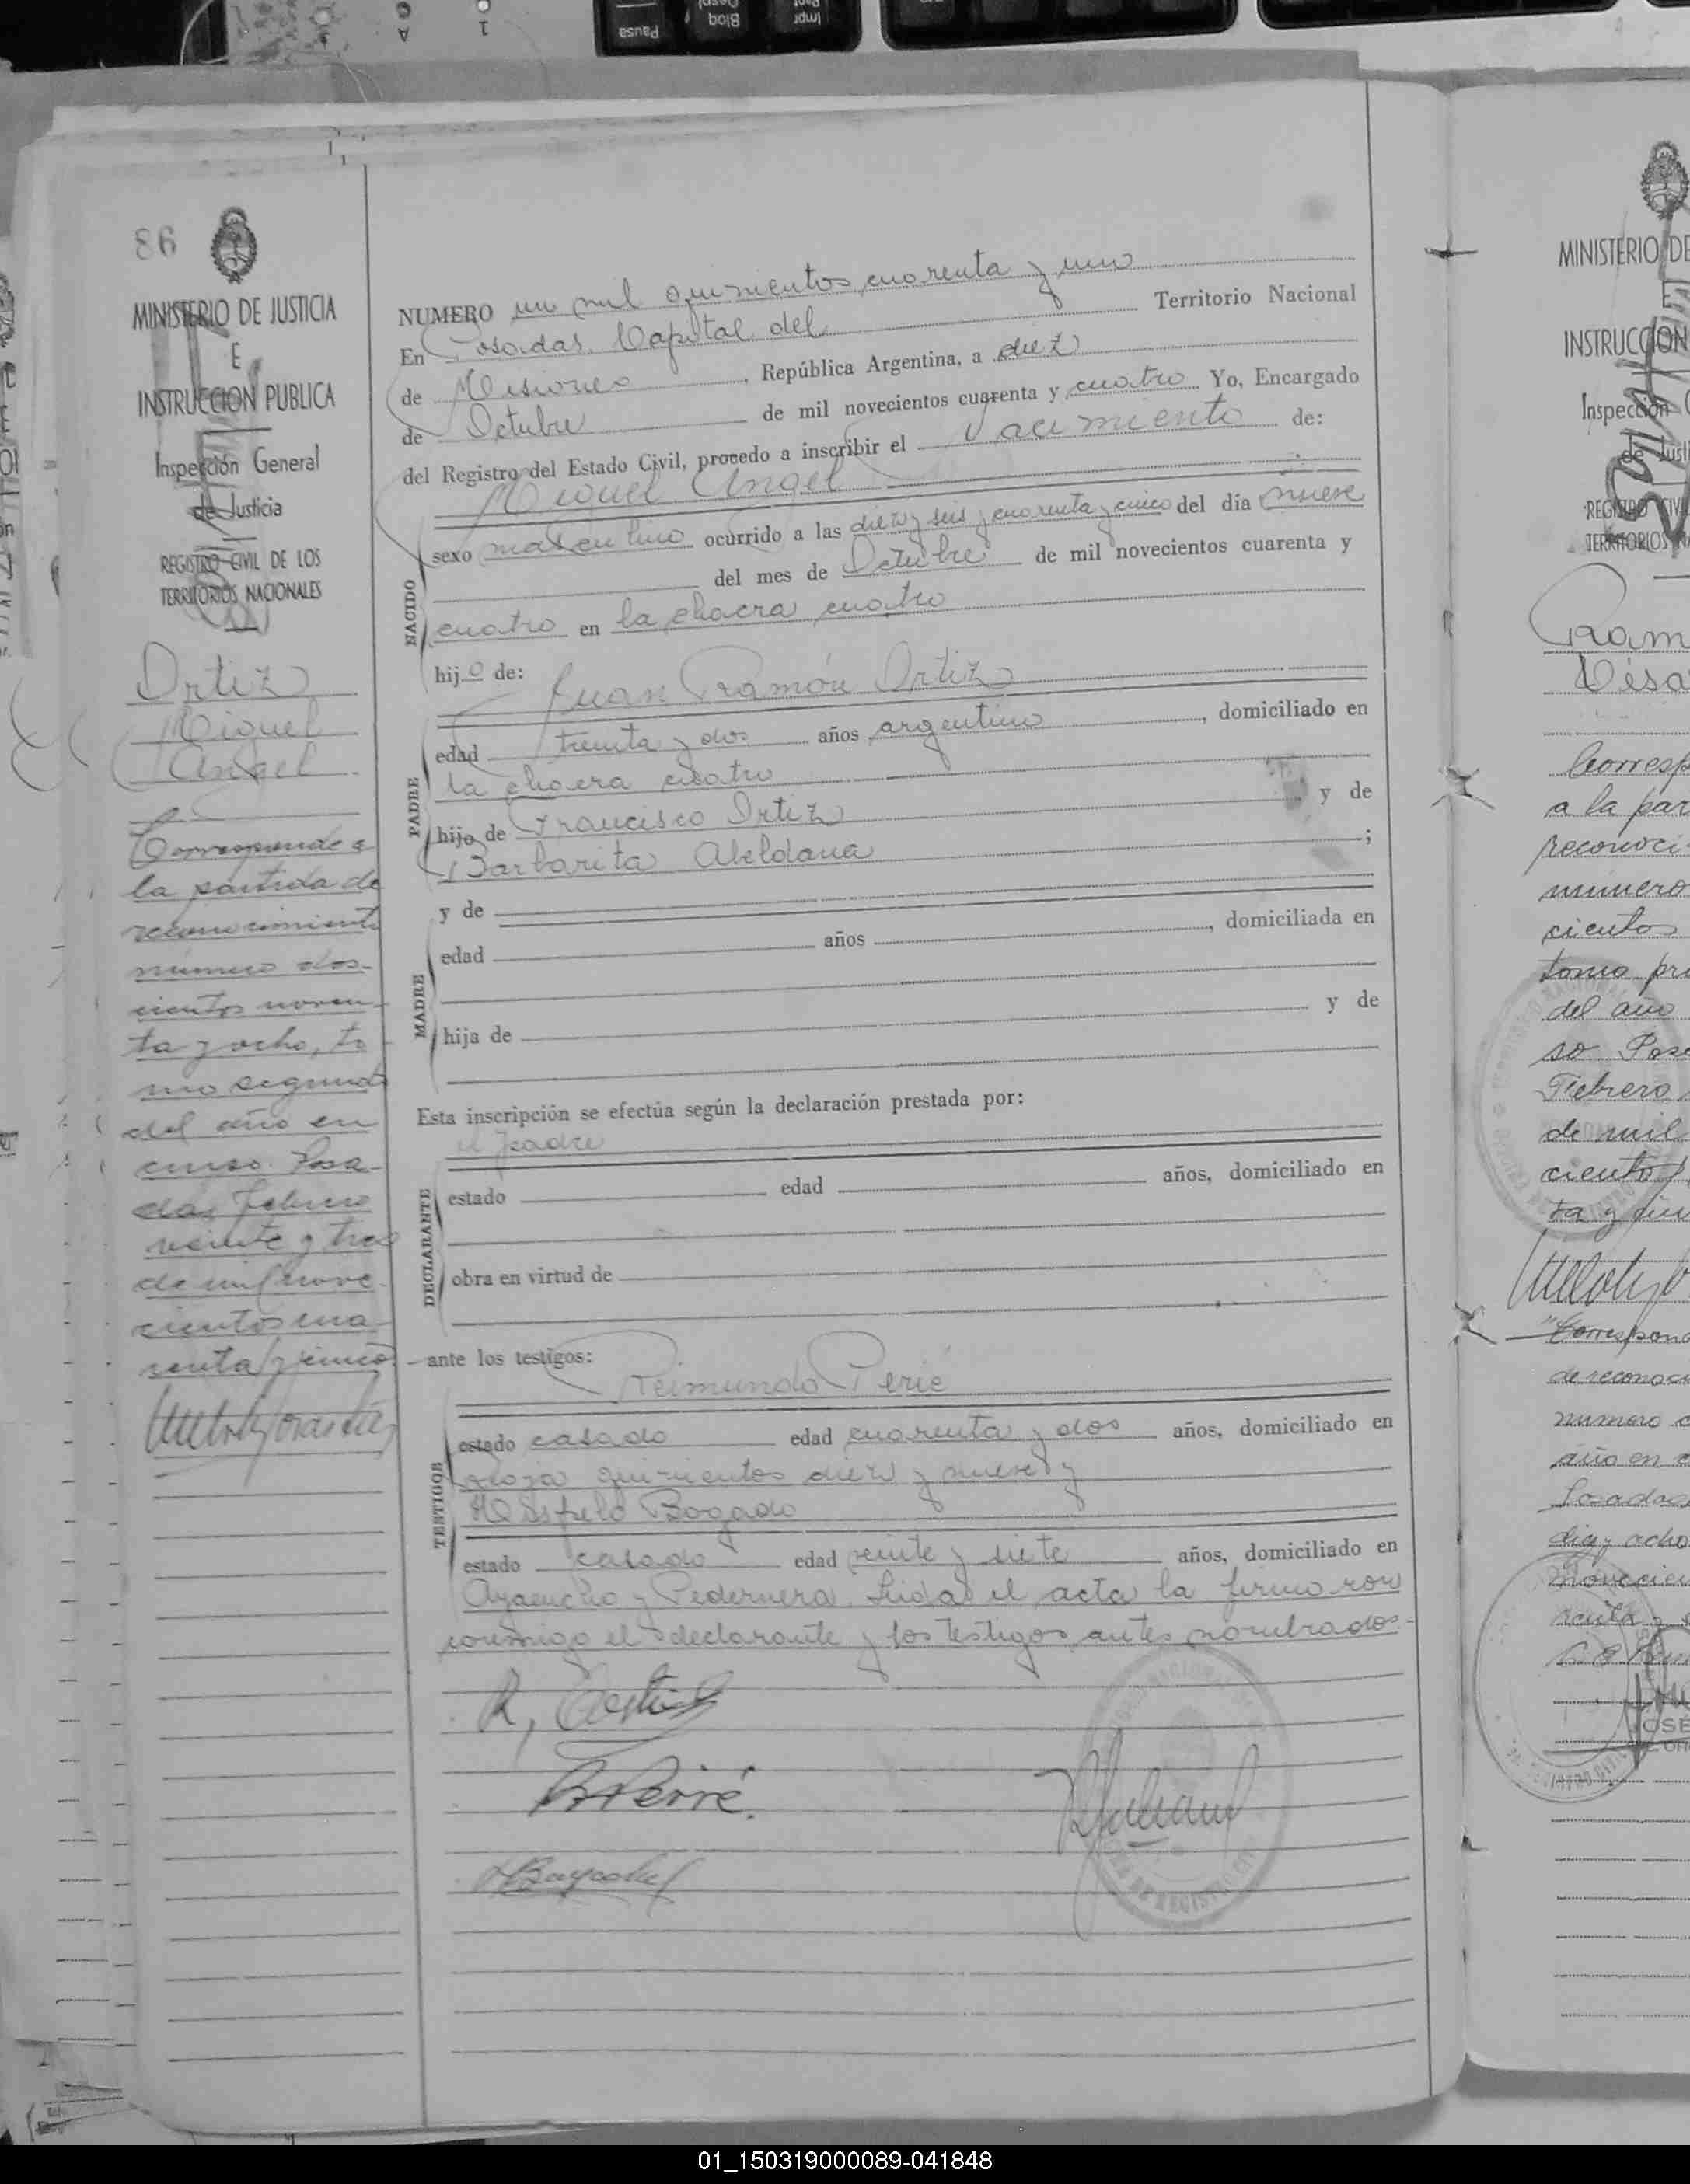 86
MINISTERIO DE JUSTICIA
E
INSTRUCCION PUBLICA
Inspección General
de Justicia
REGISTRO CIVIL DE LOS
TERRITORIOS NACIONALES
Ortiz
Miguel
Angel
Corresponde a
la partida de
reconocimiento
número dos-
cientos noven-
ta y ocho, to
mo segundo
del año en
curso. Posa-
das, febrero
veinte y tres
de mil nove
cientos cua-
renta y cinco
NUMERO un mil quinientos cuarenta y uno
En Posadas, Capital del Territorio Nacional
de Misiones, República Argentina, a diez
de Octubre de mil novecientos cuarenta y cuatro Yo, Encargado
del Registro del Estado Civil, procedo a inscribir el Nacimiento de:
Miguel Angel
NACIDO
sexo masculino ocurrido a las diez y seis y cuarenta y cinco del día nueve
del mes de Octubre de mil novecientos cuarenta y
cuatro en la chacra cuatro
hijo de:
Juan Ramón Ortiz
PADRE
edad treinta y dos años argentino, domiciliado en
la chacra cuatro
hijo de Francisco Ortiz y de
Barbarita Abeldana;
y de
MADRE
edad años, domiciliada en
hija de y de
Esta inscripción se efectúa según la declaración prestada por:
el padre
DECLARANTE
estado edad años, domiciliado en
obra en virtud de
ante los testigos:
Reimundo Perié
TESTIGOS
estado casado edad cuarenta y dos años, domiciliado en
Rioja quinientos diez y nueve y
Bogado
estado casado edad veinte y siete años, domiciliado en
Ayacucho y Pedernera. Leída el acta la firmaron
conmigo el declarante y los testigos antes nombrados.-
R. Perié.
MINISTERIO DE
E
INSTRUCCION
Inspección
de Justi
REGISTRO CIVI
TERRITORIOS NA
Ram
Césa
Corresp
a la par
reconoci
número
cientos
tomo pri
del año
so Posa
Febrero
de mil
ciento
ta y
Correspon
de reconoci
numero
año en
Posadas
diez y ocho
JOSÉ
01_150319000089-041848
Pausa
Bloq
Impr
A
1